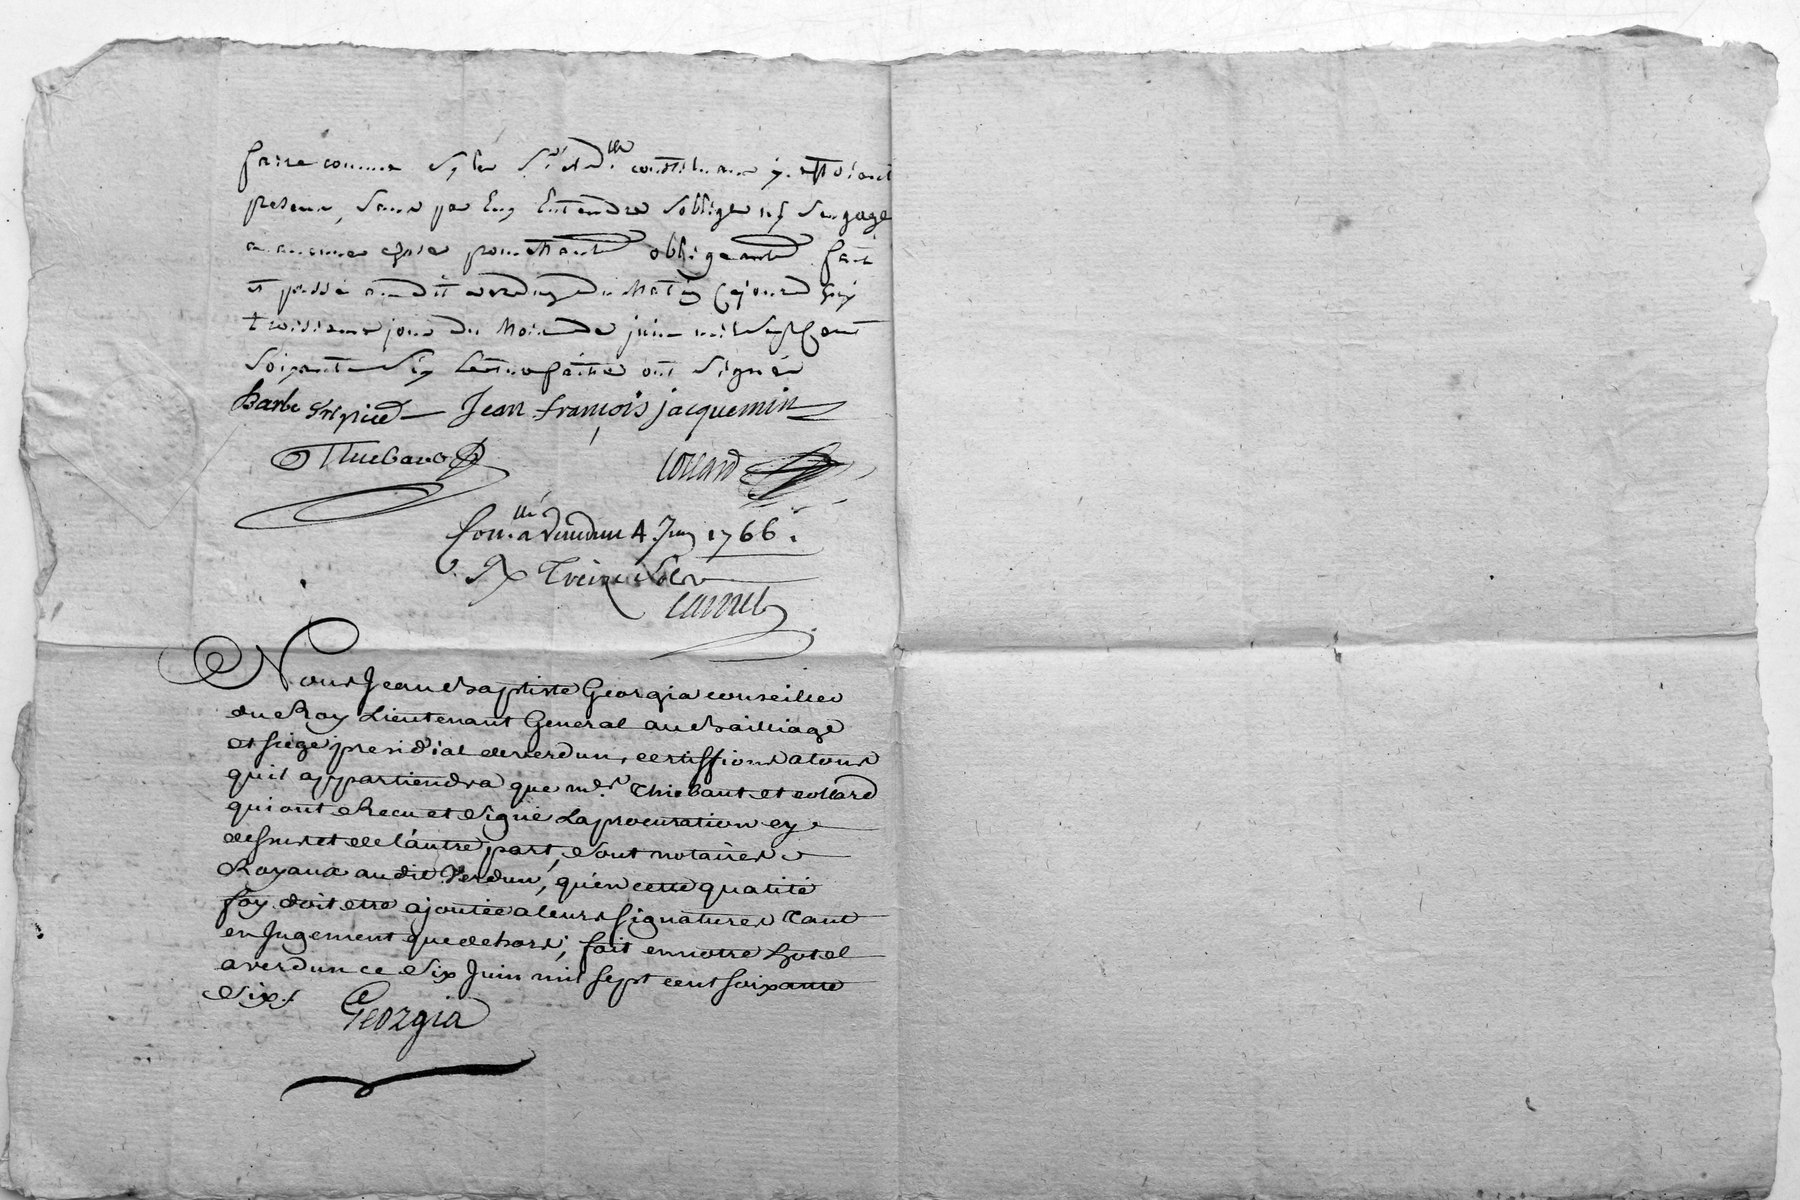 faire comme sy les Sr. et dlle. constituans y estoient
presens, sans par eux entendre s'obliger ny s'engager
promettant obligeant fait
et passé audit verdun du Matin Cejourdhuy
troisieme jour du Mois de juin mil Sept Cent
Soixante Six Lecture faitte ont Signés
Barbe Jean françois jacquemin
Thiebaut Collard
Con.llé a Verdun 4 Juin 1766.
R Treize Sols
Nous Jean Baptiste Georgia conseiller
du Roy Lieutenant General au Bailliage
et siége presidial de verdun, certiffions a tous
qu'il appartiendra que mes. Thiebaut et collard
qui ont Recu et Signé La procuration cy
dessus et de l'autre part, sont notaires
Royaux au dit Verdun, qu'en cette qualité
foy doit etre ajoutée a leurs signatures Tant
en Jugement que dehors; fait en notre hotel
a verdun ce Six Juin mil sept cent soixante
Six.
Georgia